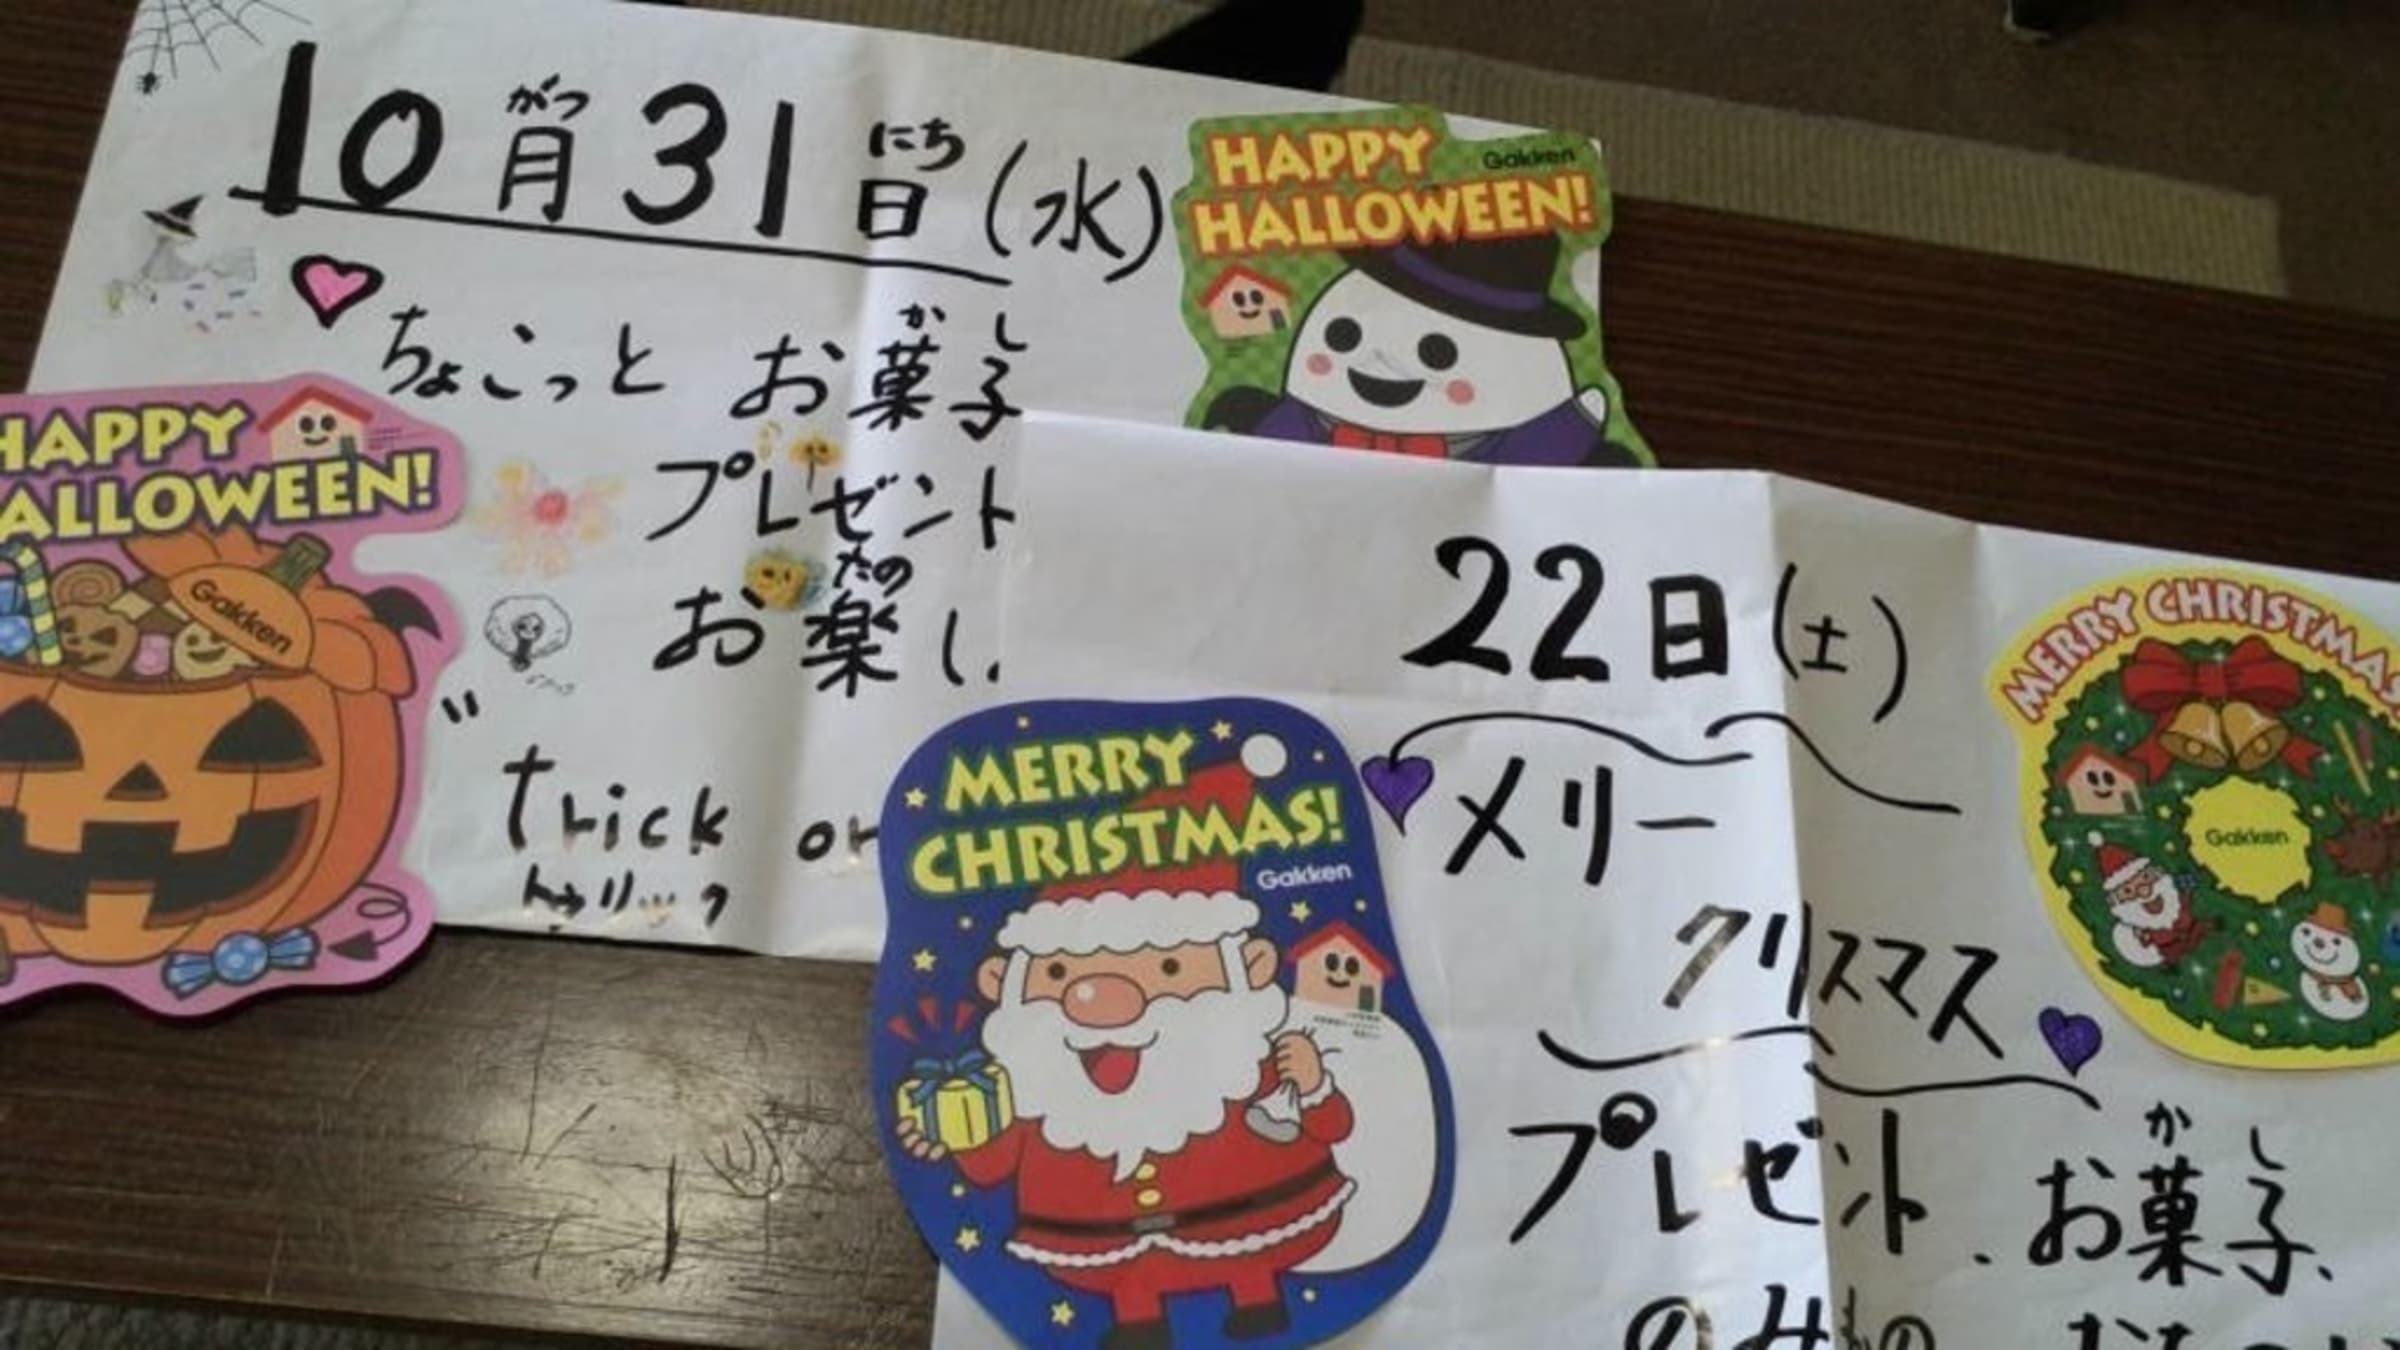 10月31日(水)
がつ にち
HAPPY
HALLOWEEN!
Gakken
ちょこっと お菓子
かし
プレゼント
お楽し
たの
HAPPY
ALLOWEEN!
Gakken
"trick or
トゥリック
22日(土)
メリー
クリスマス
プレゼント、お菓子、
かし
のみもの
MERRY
CHRISTMAS!
Gakken
MERRY CHRISTMAS
Gakken